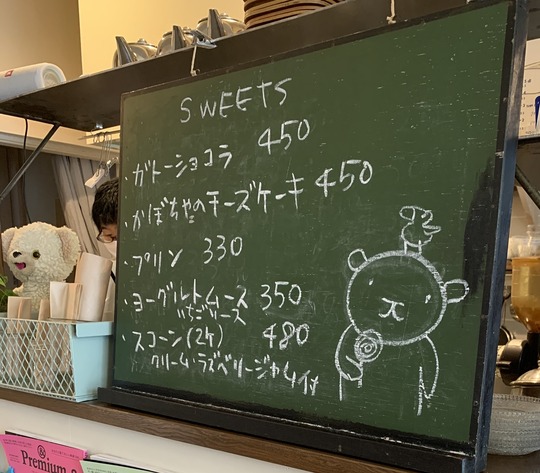 SWEETS
・ガトーショコラ 450
・かぼちゃのチーズケーキ 450
・プリン 330
・ヨーグルトムース 350
いちごソース
・スコーン(2ケ) 480
クリーム・ラズベリージャム付
Premium